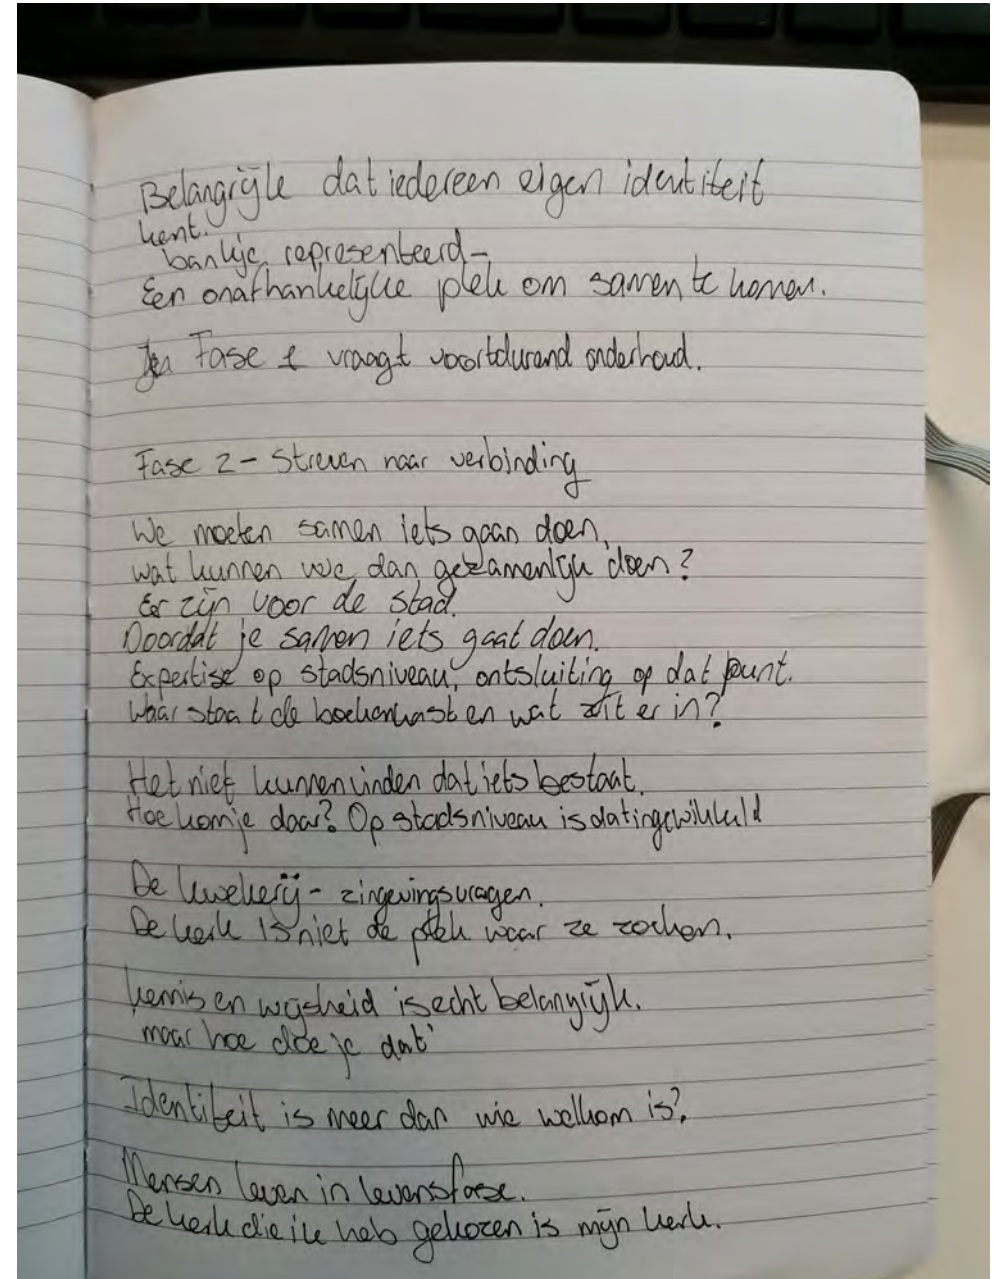 Belangrijk dat iedereen eigen identiteit
kent.
bankje representeerd -
Een onafhankelijke plek om samen te komen.
Fase 1 vraagt voortdurend onderhoud.
Fase 2 - Streven naar verbinding
We moeten samen iets gaan doen,
wat kunnen we dan gezamenlijk doen?
Er zijn voor de stad.
Doordat je samen iets gaat doen.
Expertise op stadsniveau, ontsluiting op dat punt.
Waar staat de boekenkast en wat zit er in?
Het niet kunnen vinden dat iets bestaat.
Hoe kom je daar? Op stadsniveau is dat ingewikkeld
De kwekerij - zingevingsvragen.
De kerk is niet de plek waar ze zochen.
kennis en wijsheid is echt belangrijk.
maar hoe doe je dat
Identiteit is meer dan wie welkom is?
Mensen leven in levensfase.
De kerk die ik heb gekozen is mijn kerk.